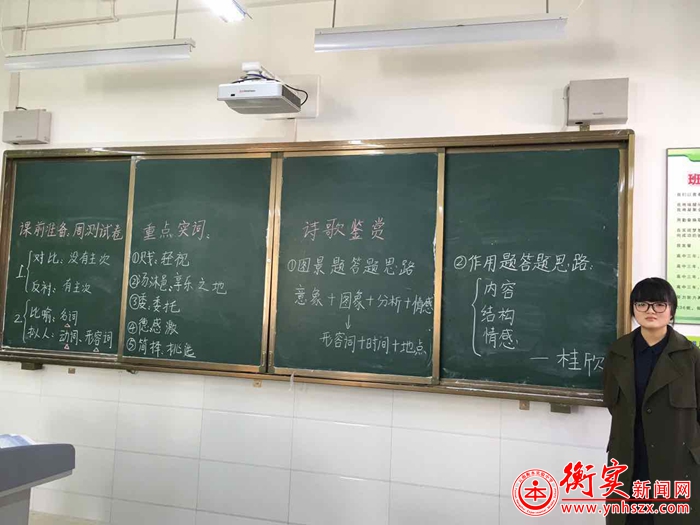 课前准备：周测试卷
1 对比：没有主次
反衬：有主次
2 比喻：名词
拟人：动词、形容词
重点实词：
①贱：轻视
②汤沐邑：享乐之地
③委：委托
④德：感激
⑤简择：挑选
诗歌鉴赏
①图景题答题思路
意象+图象+分析+情感
形容词+时间+地点
②作用题答题思路：
内容
结构
情感
—桂欣
班
衡实新闻网
www.ynhszx.com